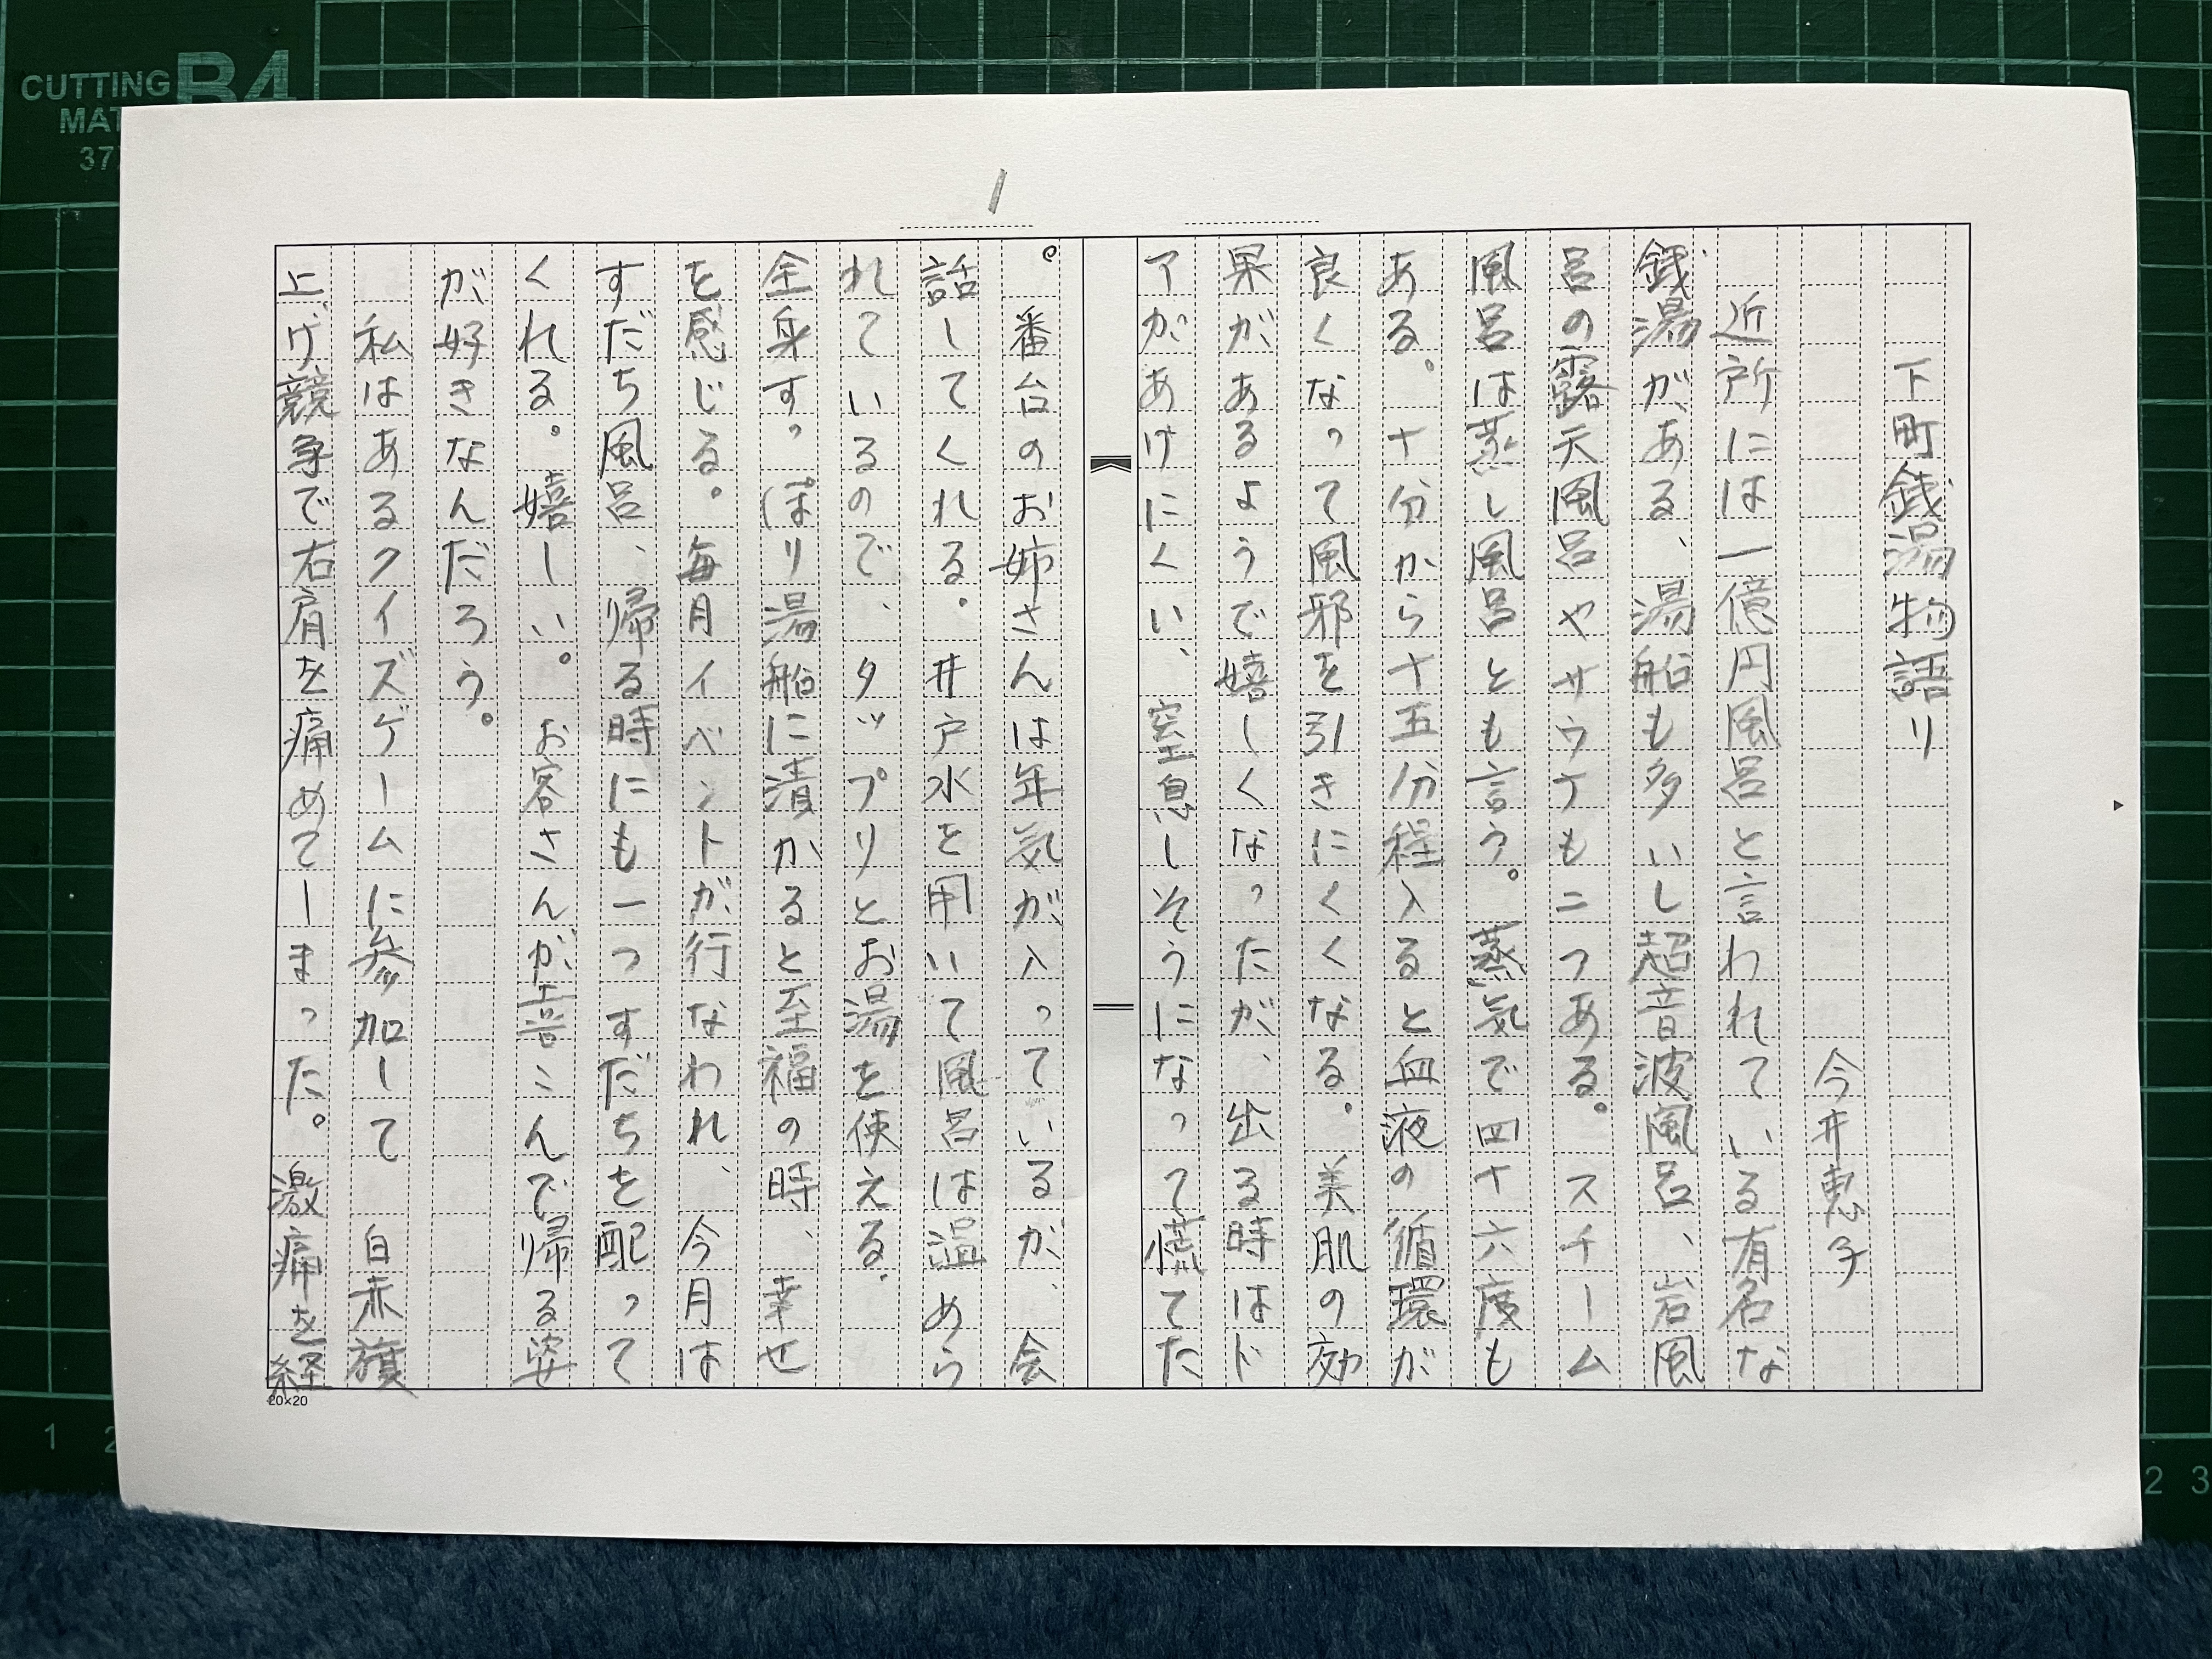 CUTTING
MAT
B4
37
1
下町銭湯物語り
今井恵子
近所には一億円風呂と言われている有名な
銭湯がある、湯船も多いし超音波風呂、岩風
呂の露天風呂やサウナも二つある。スチーム
風呂は蒸し風呂とも言う。蒸気で四十六度も
ある。十分から十五分程入ると血液の循環が
良くなって風邪を引きにくくなる。美肌の効
果があるようで嬉しくなったが、出る時はド
アがあけにくい、窒息しそうになって慌てた
。番台のお姉さんは年気が入っているが、会
話してくれる。井戸水を用いて風呂は温めら
れているので、タップリとお湯を使える.
全身すっぽり湯船に漬かると至福の時、幸せ
を感じる。毎月イベントが行なわれ、今月は
すだち風呂、帰る時にも一つすだちを配って
くれる。嬉しい。お客さんが喜こんで帰る姿
が好きなんだろう。
私はあるクイズゲームに参加して 白赤旗
上げ競争で右肩を痛めてしまった。激痛を経
20×20
1 2
2 3